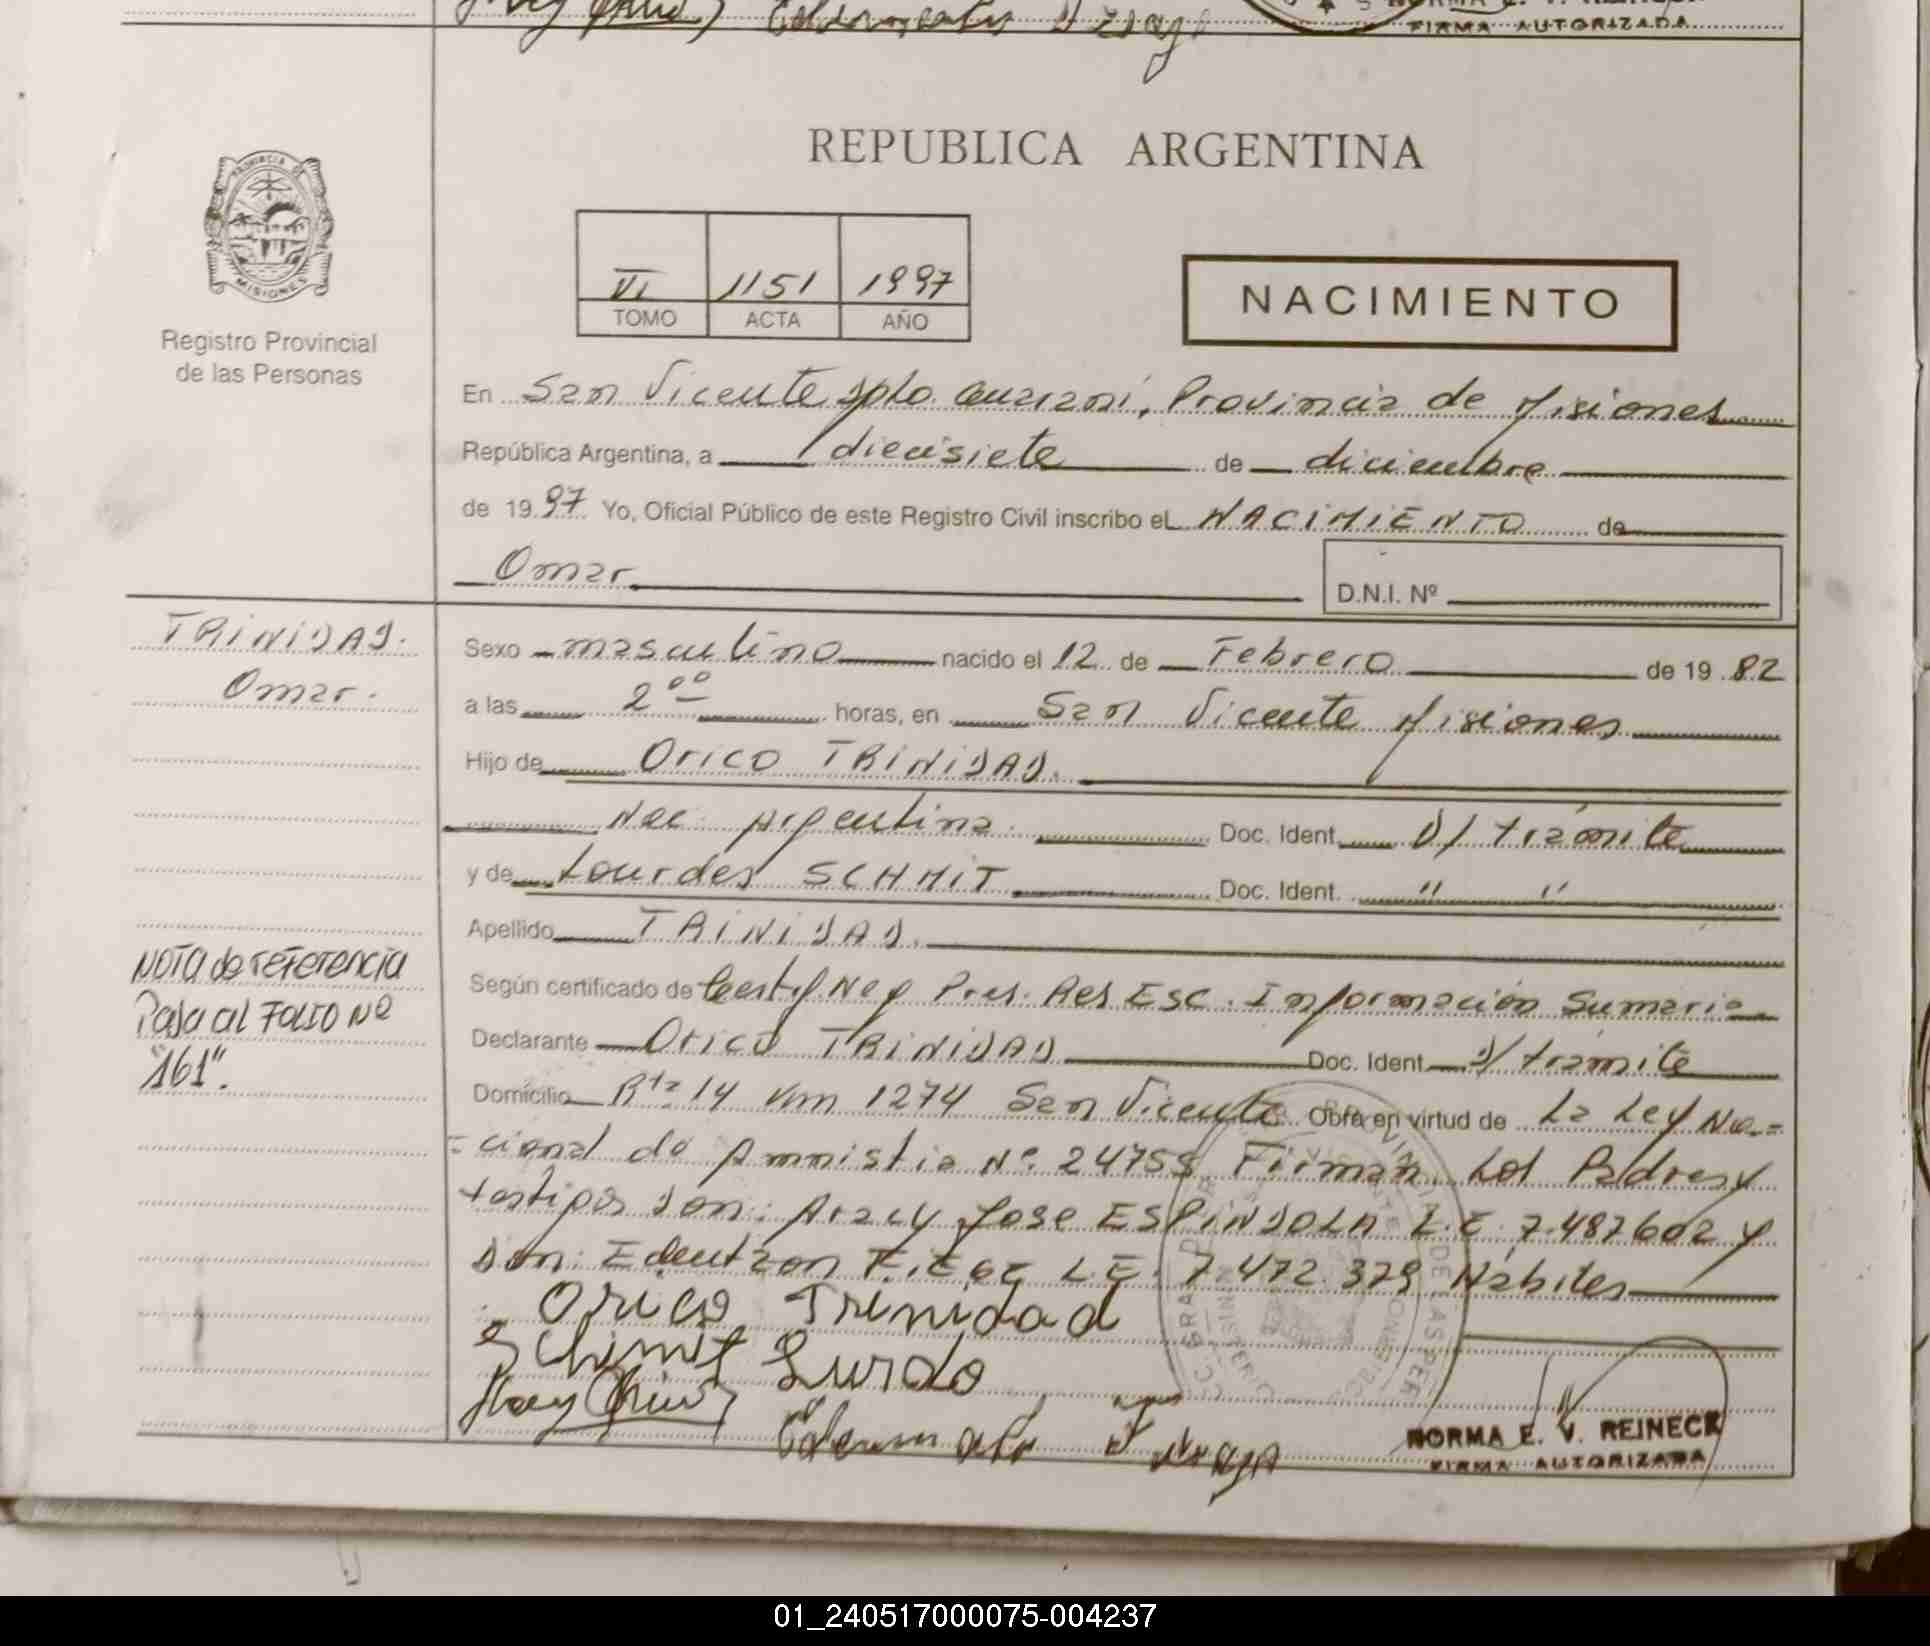 FIRMA AUTORIZADA
REPUBLICA ARGENTINA
PROVINCIA DE
MISIONES
Registro Provincial
de las Personas
VI 1151 1997
TOMO ACTA AÑO
NACIMIENTO
En San Vicente Dpto. Guaraní, Provincia de Misiones
República Argentina, a diecisiete de diciembre
de 1997 Yo, Oficial Público de este Registro Civil inscribo el NACIMIENTO de
Omar
D.N.I. Nº
TRINIDAD.
Omar.
Sexo masculino nacido el 12 de Febrero de 1982
a las 2 00 horas, en San Vicente Misiones
Hijo de Orico TRINIDAD.
Nac. Argentina. Doc. Ident. D/ trámite
y de Lourdes SCHMIT Doc. Ident. " "
Apellido TRINIDAD.
NOTA de referencia
Pasa al FOLIO Nº
"161".
Según certificado de Certf. Neg Pres. Res Esc. Información Sumaria
Declarante Orico TRINIDAD Doc. Ident. D/ trámite
Domicilio Rta 14 Km 1274 San Vicente Obra en virtud de La Ley Na-
=cional de Amnistia Nº 24755 Firman Los Padres y
testigos Don: Aracy Jose ESPINDOLA L.E. 7.487602 y
Don: L.E. 7.472.379 Hábiles
Orico Trinidad
Schimit Lurdo
NORMA E. V. REINECK
FIRMA AUTORIZADA
01_240517000075-004237